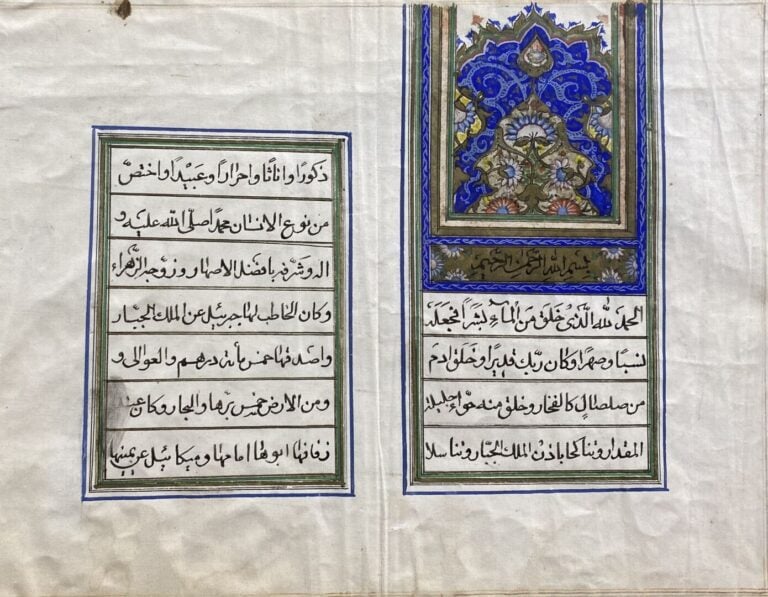 بسم الله الرحمن الرحیم
الحمد لله الذی خلق من المآء بشرًا فجعله
نسبًا وصهرًا وکان ربك قدیرًا وخلق ادم
من صلصال کالفخار وخلق منه حوّاء جلیلة
المقدار وتناکحا باذن الملك الجبّار وتناسلا
ذکورًا واناثًا واحرارًا وعبیدًا واختصّ
من نوع الانسان محمدًا صلّی الله علیه و
اله وشرّفه بافضل الاصهار وزوجه الزّهراء
وکان الخاطب لها جبرئیل عن الملك الجبّار
واصدقها خمس مأیة درهم والعوالی و
ومن الارض خمس برها والبحار وکان عند
زفافها ابوها امامها ومیکائیل عن یمینها